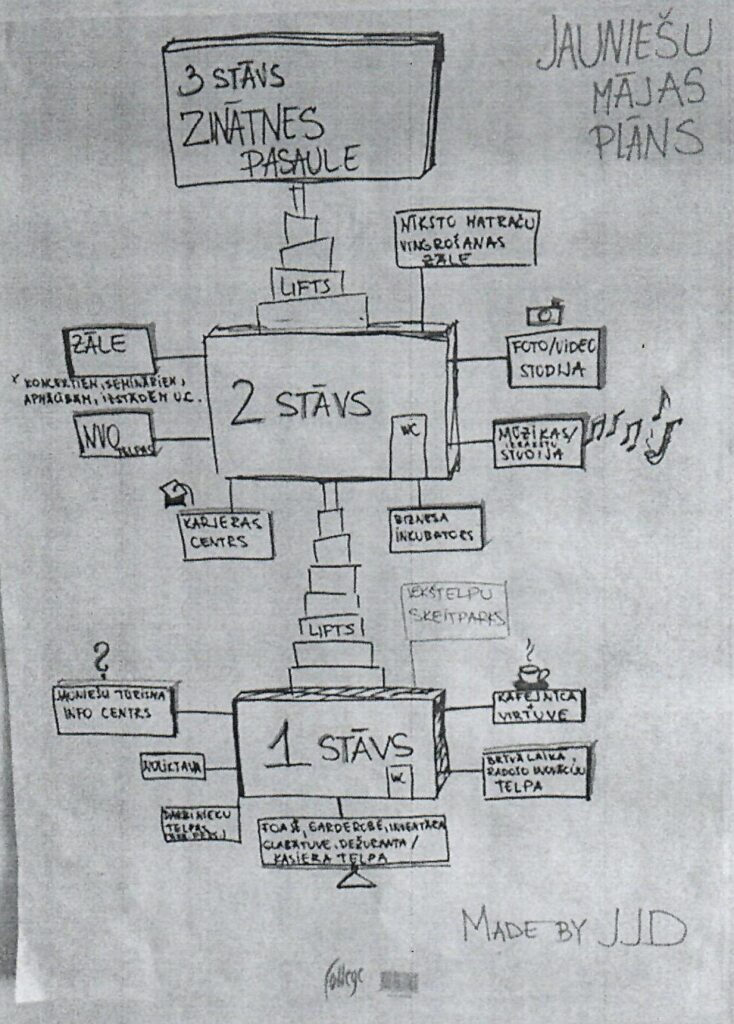 JAUNIEŠU
MĀJAS
PLĀNS
3 STĀVS
ZINĀTNES
PASAULE
LIFTS
MĪKSTO MATRAČU
VINGROŠANAS
ZĀLE
ZĀLE
KONCERTIEM, SEMINĀRIEM,
APMĀCĪBĀM, IZSTĀDĒM U.C.
NVO
TELPAS
2 STĀVS
WC
FOTO/VIDEO
STUDIJA
MŪZIKAS/
IERAKSTU
STUDIJA
KARJERAS
CENTRS
BIZNESA
INKUBATORS
LIFTS
IEKŠTELPU
SKEITPARKS
?
JAUNIEŠU TŪRISMA
INFO CENTRS
KAFEJNĪCA
+
VIRTUVE
1 STĀVS
WC
NOLIKTAVA
BRĪVĀ LAIKA,
RADOŠO INOVĀCIJU
TELPA
DARBINIEKU
TELPAS
FOAJĒ, GARDEROBE, INVENTĀRA
GLABĀTUVE, DEŽURANTA/
KASIERA TELPA
MADE BY JJD
College